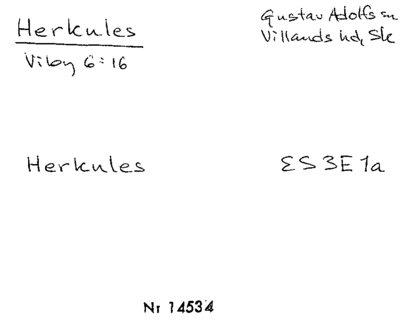 Herkules
Viby 6:16
Gustav Adolfs sn
Villands hd, Sk
Herkules
ES3E1a
Nr 14534